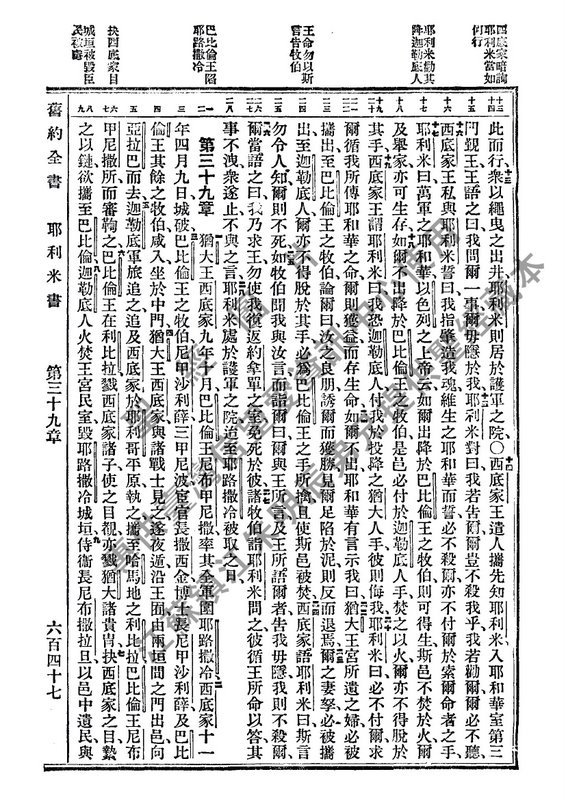 西底家暗詢
耶利米當如
何行
耶利米勸其
降迦勒底人
王命勿以斯
言告牧伯
巴比倫王陷
耶路撒冷
抉西底家目
城垣被毀臣
民被虜
此而行衆以繩曳之出井耶利米則居於護軍之院○西底家王遣人攜先知耶利米入耶和華室第三
門覲王王語之曰我問爾一事爾毋隱於我耶利米對曰我若告爾爾豈不殺我乎我若勸爾爾必不聽
西底家王私與耶利米誓曰我指肇造我魂維生之耶和華而誓必不殺爾亦不付爾於索爾命者之手
耶利米曰萬軍之耶和華以色列之上帝云如爾出降於巴比倫王之牧伯則可得生斯邑不焚於火爾
及舉家亦可生存如爾不出降於巴比倫王之牧伯是邑必付於迦勒底人手焚之以火爾亦不得脫於
其手西底家王謂耶利米曰我恐迦勒底人付我於投降之猶大人手彼則侮我耶利米曰必不付爾求
爾循我所傳耶和華之命爾則獲益而存生命如爾不出耶和華有言示我曰猶大王宮所遺之婦必被
攜出至巴比倫王之牧伯論爾曰汝之良朋誘爾而獲勝見爾足陷於泥則反而退焉爾之妻孥必被攜
出至迦勒底人爾亦不得脫於其手必爲巴比倫王之手所擒且使斯邑被焚西底家語耶利米曰斯言
勿令人知爾則不死如牧伯聞我與汝言而詣爾曰爾與王所言及王所語爾者告我毋隱我則不殺爾
爾當語之曰我乃求王勿使我復返約拿單之室免死於彼諸牧伯詣耶利米問之彼循王所命以答其
事不洩衆遂止不與之言耶利米處於護軍之院迨至耶路撒冷被取之日
第三十九章 猶大王西底家九年十月巴比倫王尼布甲尼撒率其全軍圍耶路撒冷西底家十一
年四月九日城破巴比倫王之牧伯尼甲沙利薛三甲尼波宦官長撒西金博士長尼甲沙利薛及巴比
倫王其餘之牧伯咸入坐於中門猶大王西底家與諸戰士見之遂夜遁沿王囿由兩垣間之門出邑向
亞拉巴而去迦勒底軍旅追之追及西底家於耶利哥平原執之攜至哈馬地之利比拉巴比倫王尼布
甲尼撒所而審鞫之巴比倫王在利比拉戮西底家諸子使之目覩亦戮猶大諸貴冑抉西底家之目縶
之以鏈欲攜至巴比倫迦勒底人火焚王宮民室毀耶路撒冷城垣侍衛長尼布撒拉旦以邑中遺民與
舊約全書 耶利米書 第三十九章 六百四十七